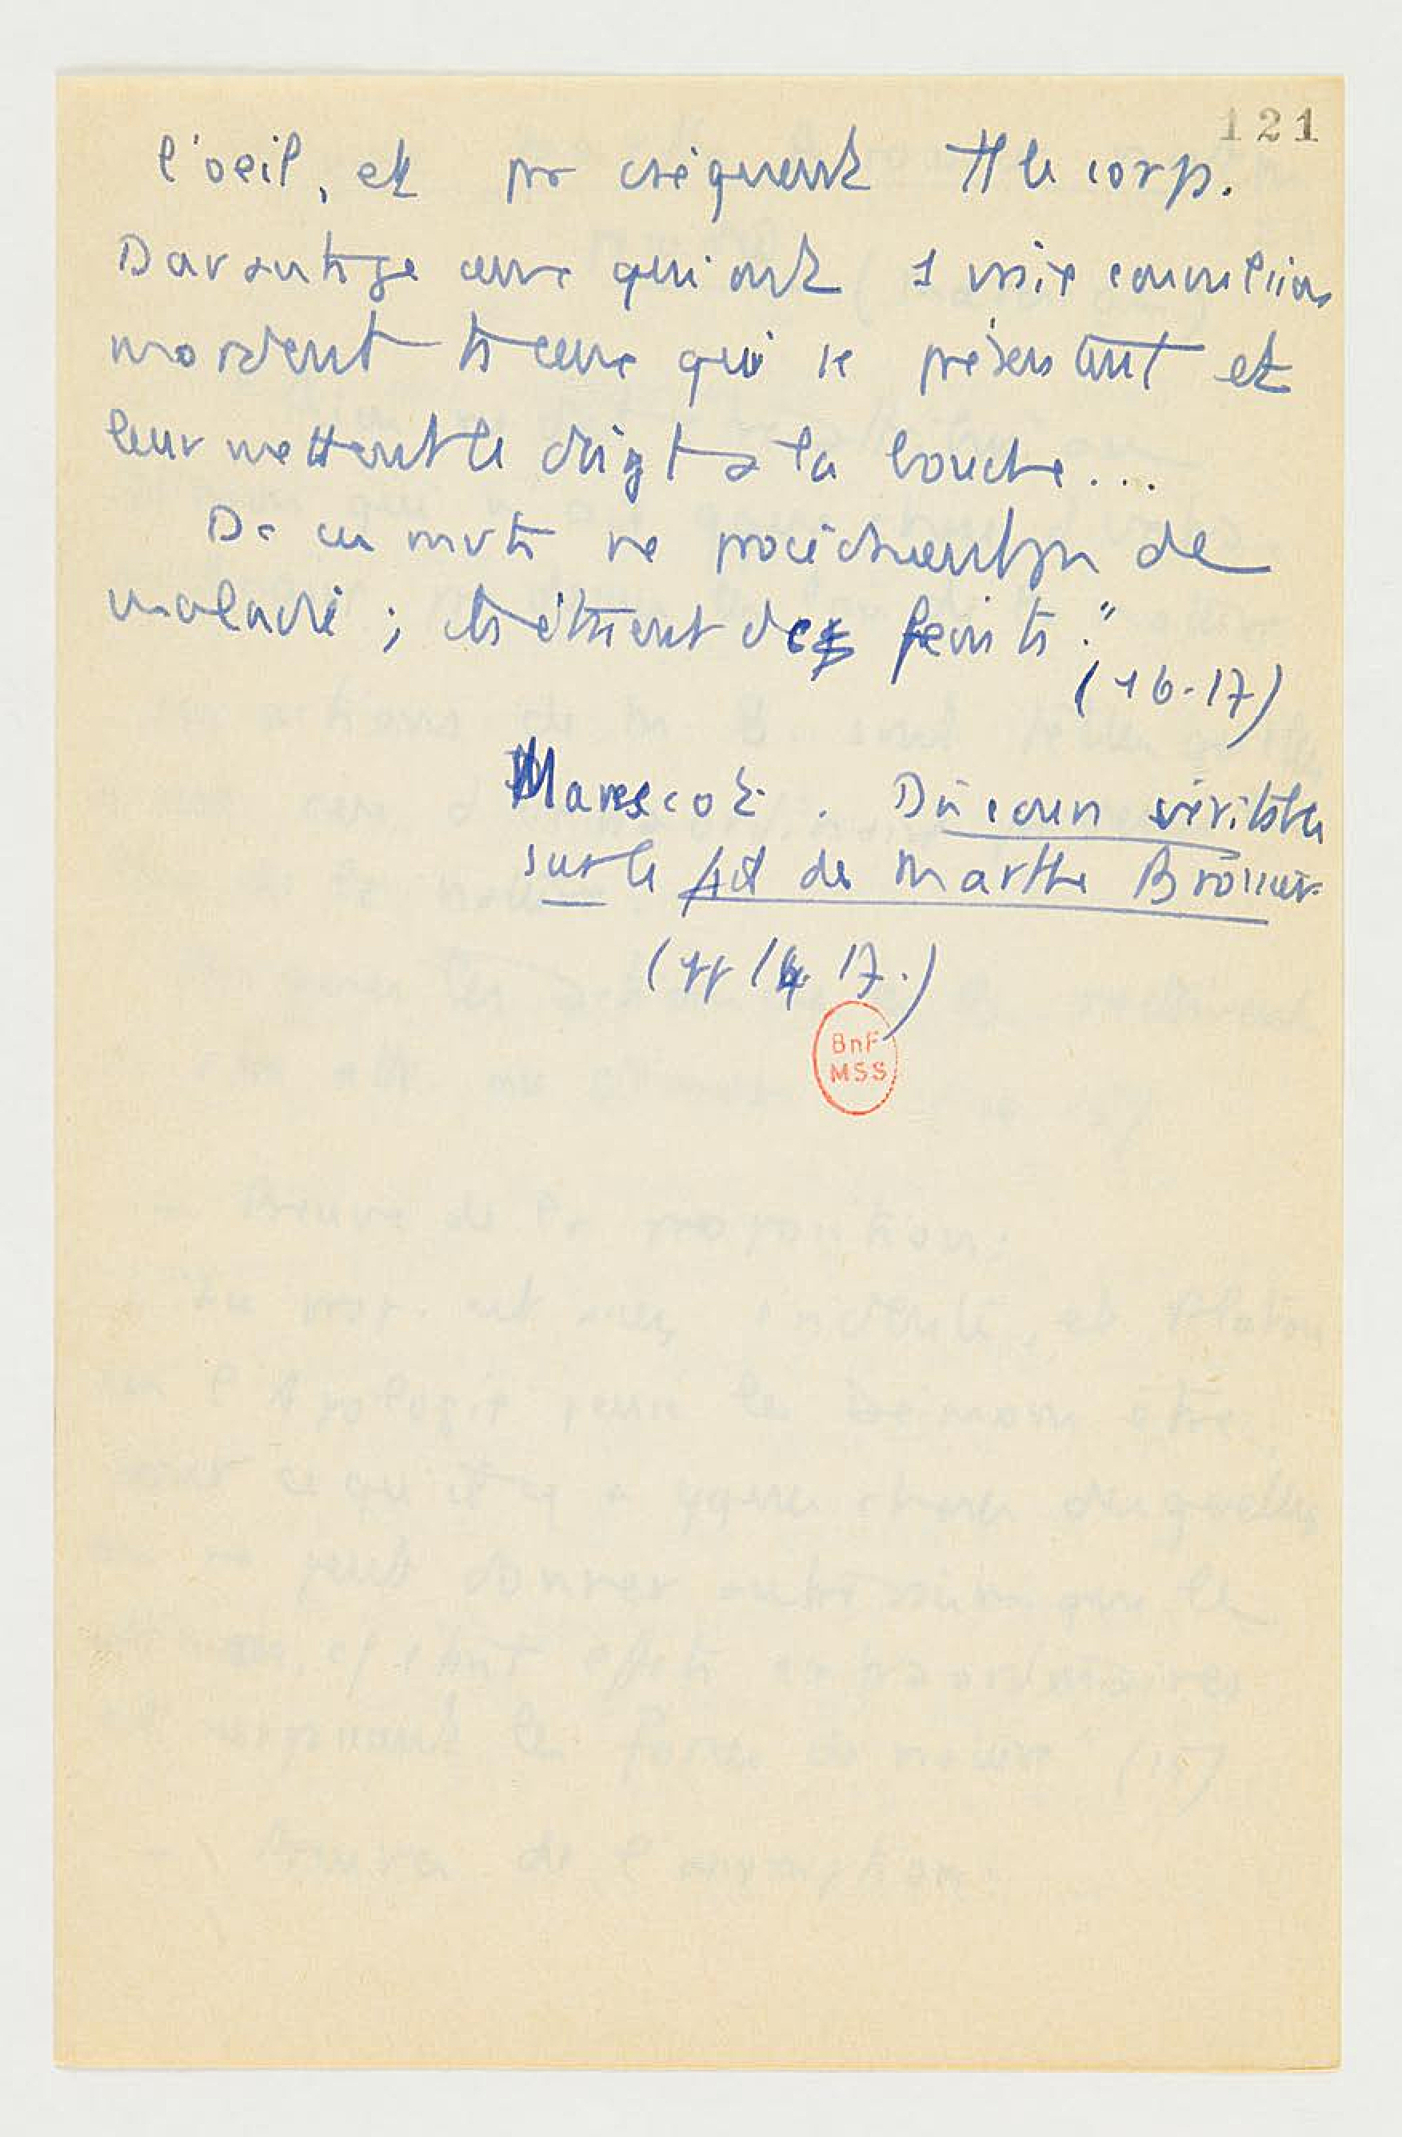 121
l'oeil, et par conséquent tt le corps.
Davantage ceux qui ont 1 vraie convulsion
mordent ts ceux qui se présentent et
leur mettent le doigt à la bouche...
De ces mvts ne procédaient pas de
maladie ; ils étaient des feints."
(16-17)
Marescot. Discours véritable
sur le fait de Marthe Brossier
(pp 14 17.)
BnF
MSS